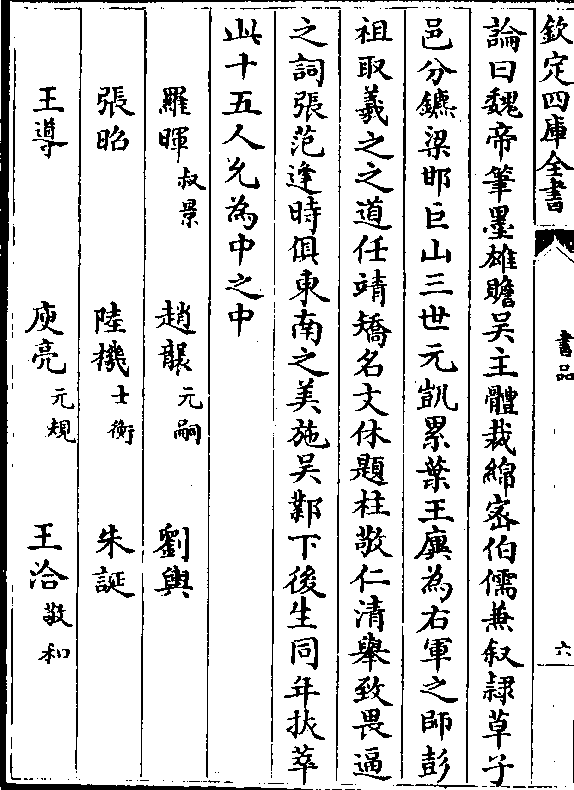 欽定四庫全書
書品
六
論曰魏帝筆墨雄贍吳主體裁綿宻伯儒兼叙隷草子
邑分鑣梁邯巨山三世元凱累葉王廙為右軍之師彭
祖取羲之之道任靖矯名文休題柱敬仁清舉致畏逼
之詞張范逢時俱東南之美施吳鄴下後生同年拔萃
此十五人允為中之中
羅暉叔景　趙襲元嗣　劉輿
張昭　陸機士衡　朱誕
王導　庾亮元規　王洽敬和